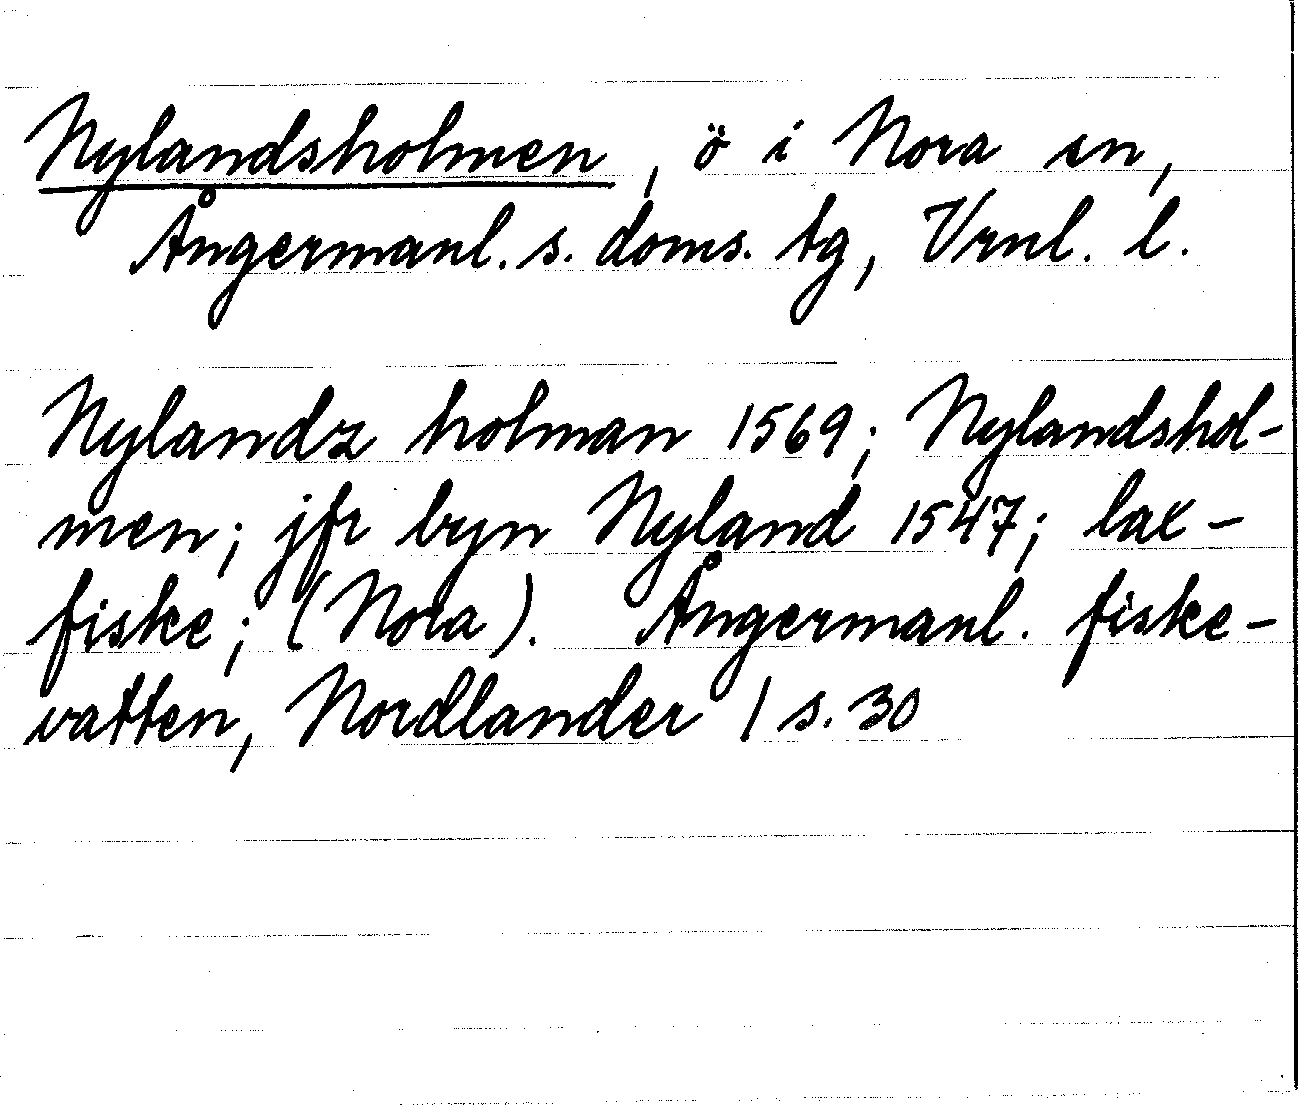 Nylandsholmen, ö i Nora sn,
Ångermanl. s. doms. tg, Vrnl. l.
Nylandz holman 1569; Nylandshol-
men; jfr byn Nyland 1547; lax-
fiske; (Nora). Ångermanl. fiske-
vatten, Nordlander 1 s. 30